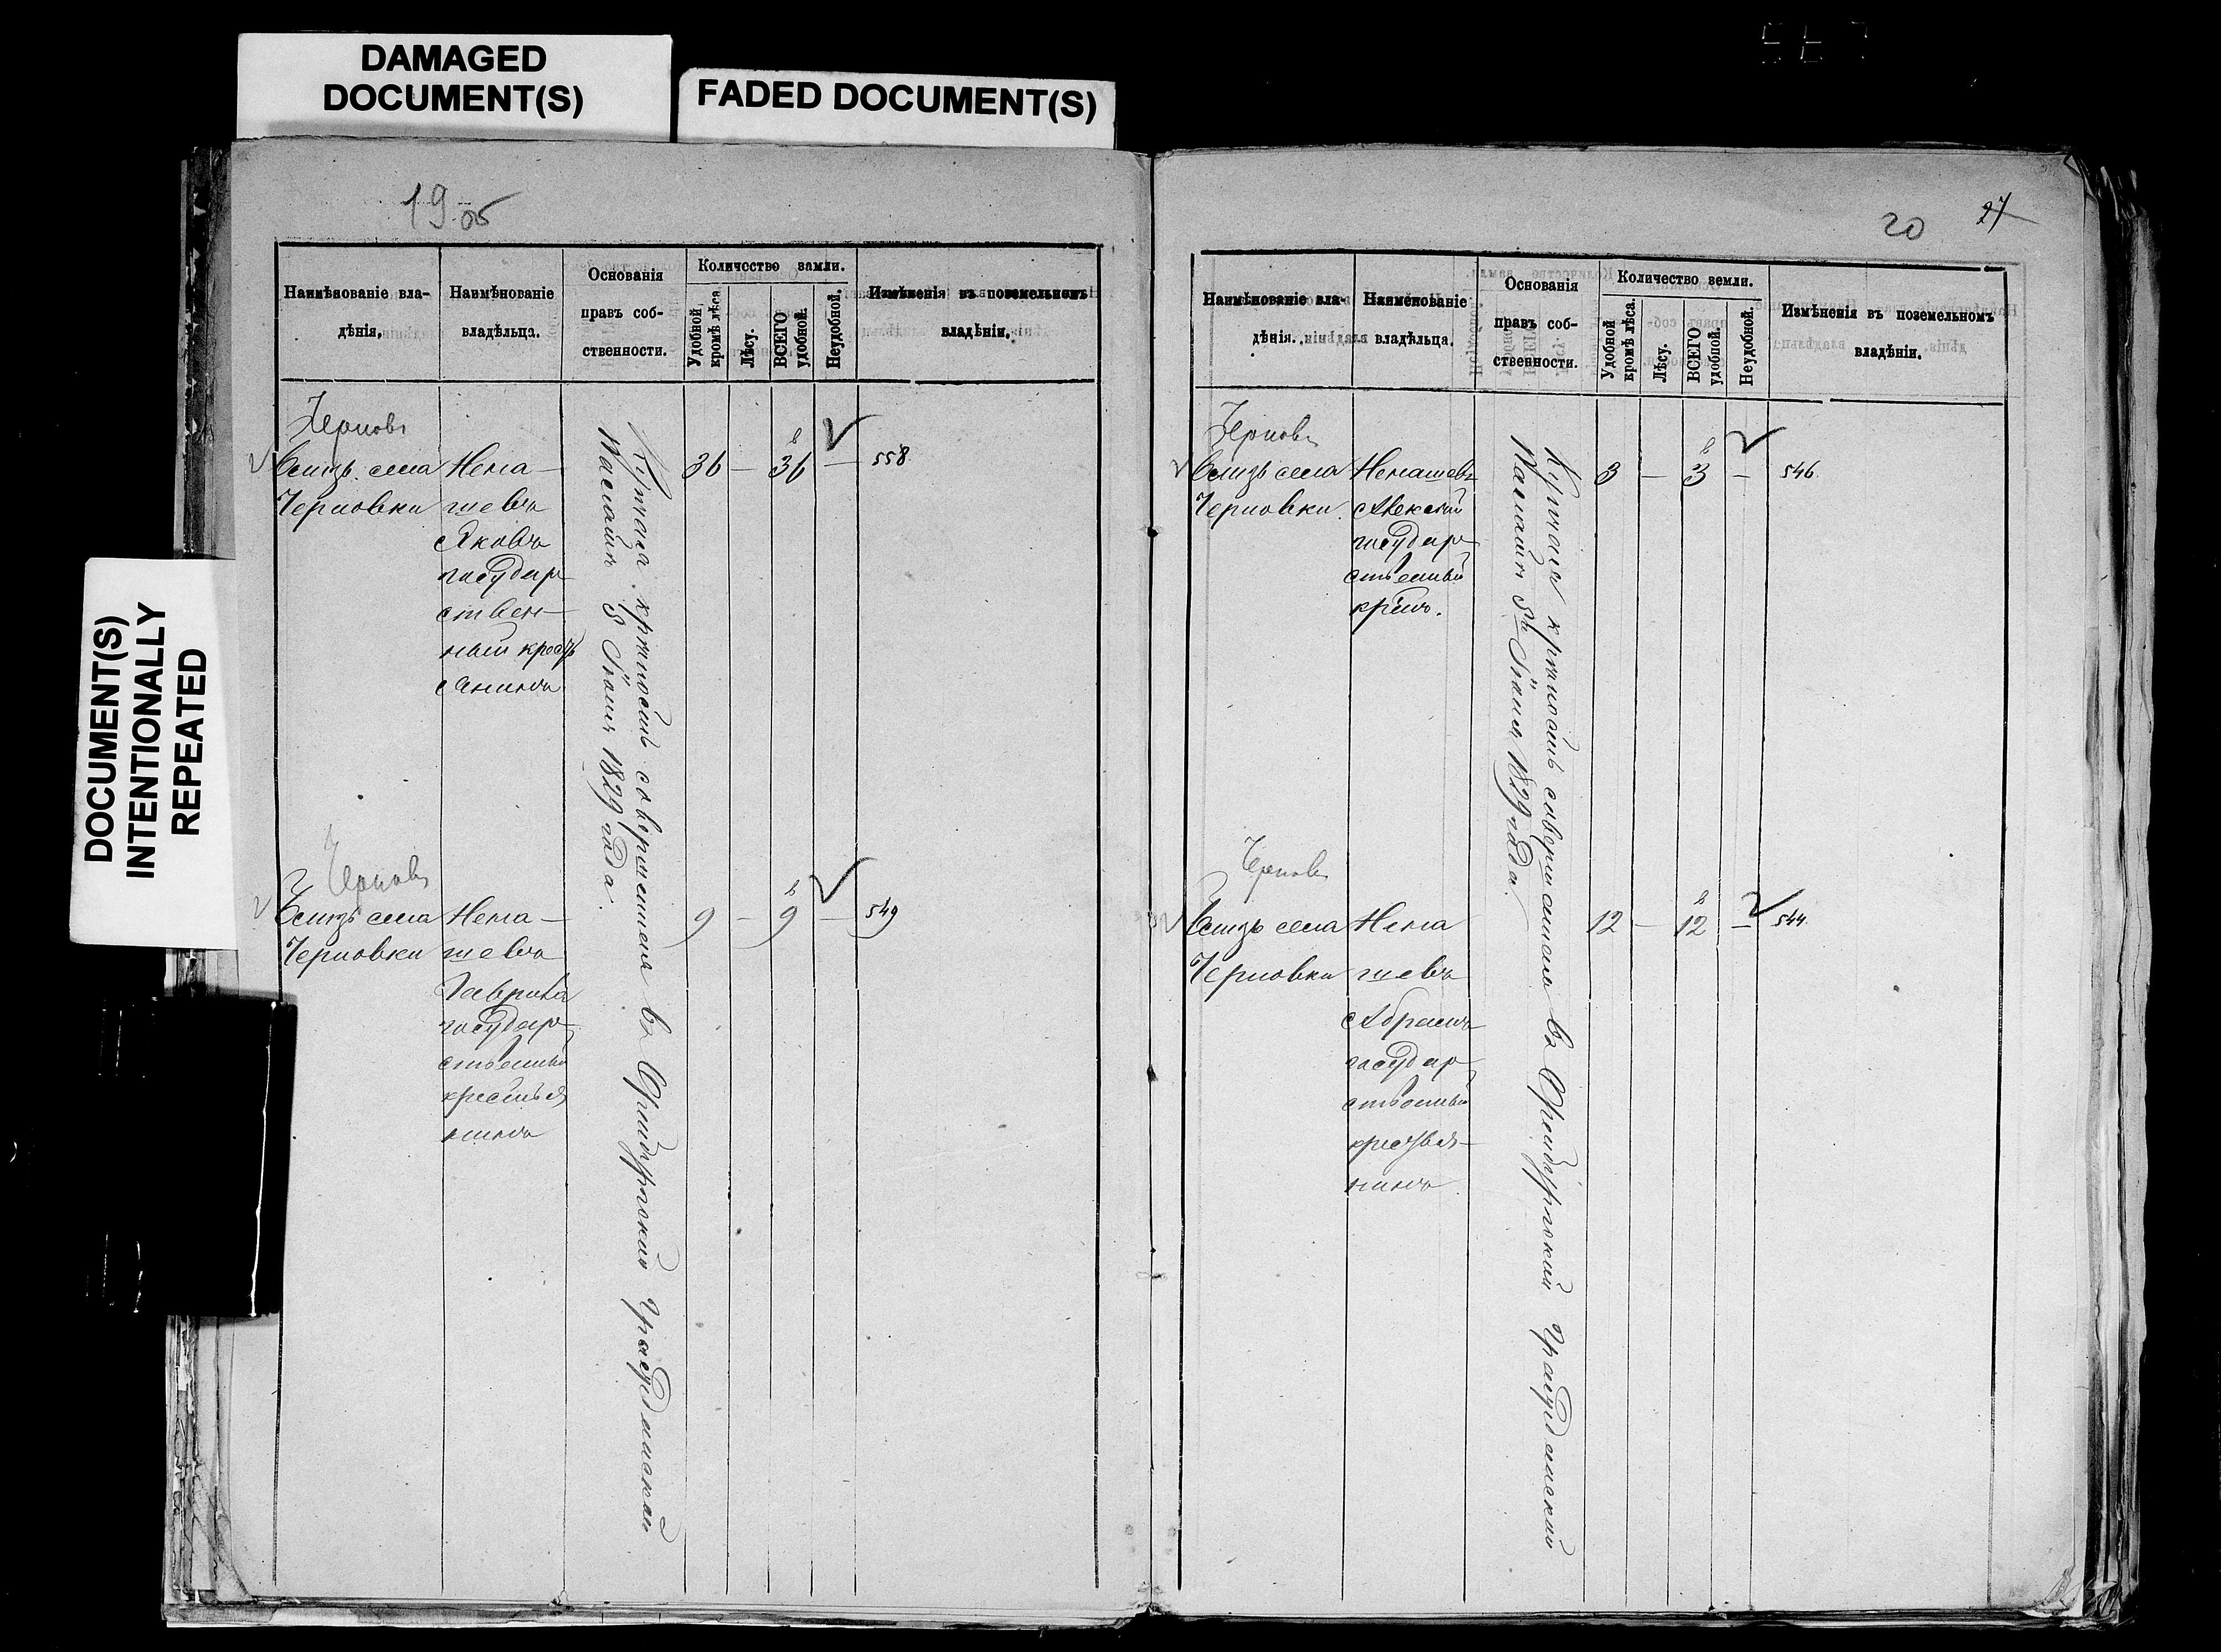 DAMAGED
DOCUMENT(S)
FADED DOCUMENT(S)
DOCUMENT(S)
INTENTIONALLY
REPEATED
19 об
Наимѣнованіе вла-
дѣнія.
Наимѣнованіе
владѣльца.
Основанія
правъ соб-
ственности.
Количество земли.
Удобной
кромѣ лѣса.
Лѣсу.
ВСЕГО
удобной.
Неудобной.
Измѣненія въ поземельномъ
владѣніи.
Чернов.
Близъ села
Черновки
Нена-
шевъ
Яковъ
государ-
ствен-
ный кресть
янинъ
Купчая крѣпость совершенная въ Оренбургской гражданской
Палатѣ 1829 года.
36 — 36 — 558
Чернов.
Близъ села
Черновки
Нена-
шевъ
Гаврила
государ-
ственный
крестья
нинъ
9 — 9 — 549
20 27
Наимѣнованіе вла-
дѣнія.
Наимѣнованіе
владѣльца.
Основанія
правъ соб-
ственности.
Количество земли.
Удобной
кромѣ лѣса.
Лѣсу.
ВСЕГО
удобной.
Неудобной.
Измѣненія въ поземельномъ
владѣніи.
Чернов.
Близъ села
Черновки
Ненашевъ
Алексѣй
государ-
ственный
крѣнъ.
Купчая крѣпость совершенная въ Оренбургской гражданской
Палатѣ 1829 года.
3 — 3 — 546.
Чернов.
Близъ села
Черновки
Нена
шевъ
Абрамъ
государ-
ственный
крестья-
нинъ
12 — 12 — 544.